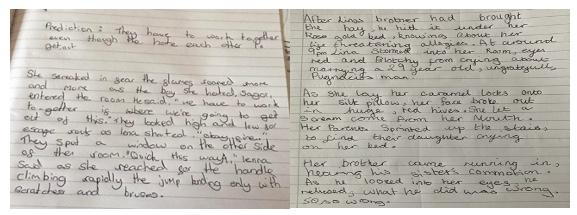 Prediction: They have to work together
even though the hate each other to
get out
She screaked in fear the flames soared more
and more as the boy she hated, Sagar,
entered the room. He said, "we have to work
to-gather is where we're going to get
out of this." They looked high and low for
escape
They spot a window on the other side
of the room. "Quick this way!" lenna
said as she reached for the handle
climbing rapidly the jump ending only with
scratches and bruses.
After Linas brother had brought
the hay, he hid it under her
Rose gold bed, knowing about her
life threatening allegies. At around
9pm Lina stormed into her room, eyes
red and blotchy from crying about
marrying a 29 year old, ungrateful,
man.
As she lay her caramel locks onto
her silk pillow, her face broke out
in huge, red hives. She let a
scream come from her mouth.
Her Parents sprinted up the stairs,
to find their daughter crying
on her bed.
Her brother came running in,
hearing his sister's commotion.
As he looked into her eyes, he
relised, what he did was wrong.
So, so wrong.